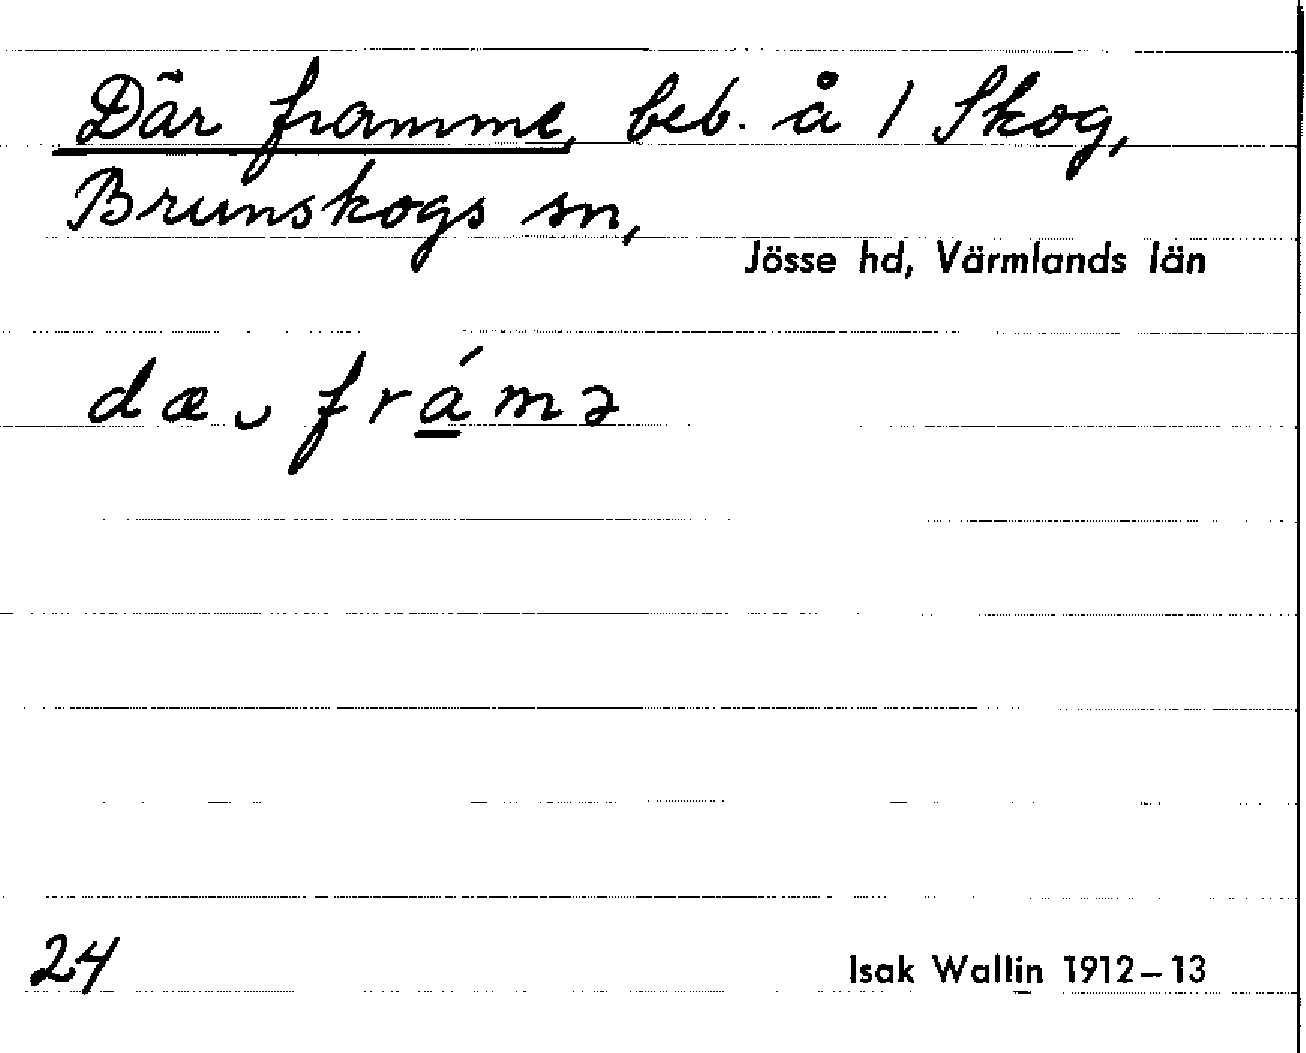 Där framme, beb. å 1 Skog,
Brunskogs sn,
Jösse hd, Värmlands län
dæ‿frá̲mə
24
Isak Wallin 1912–13